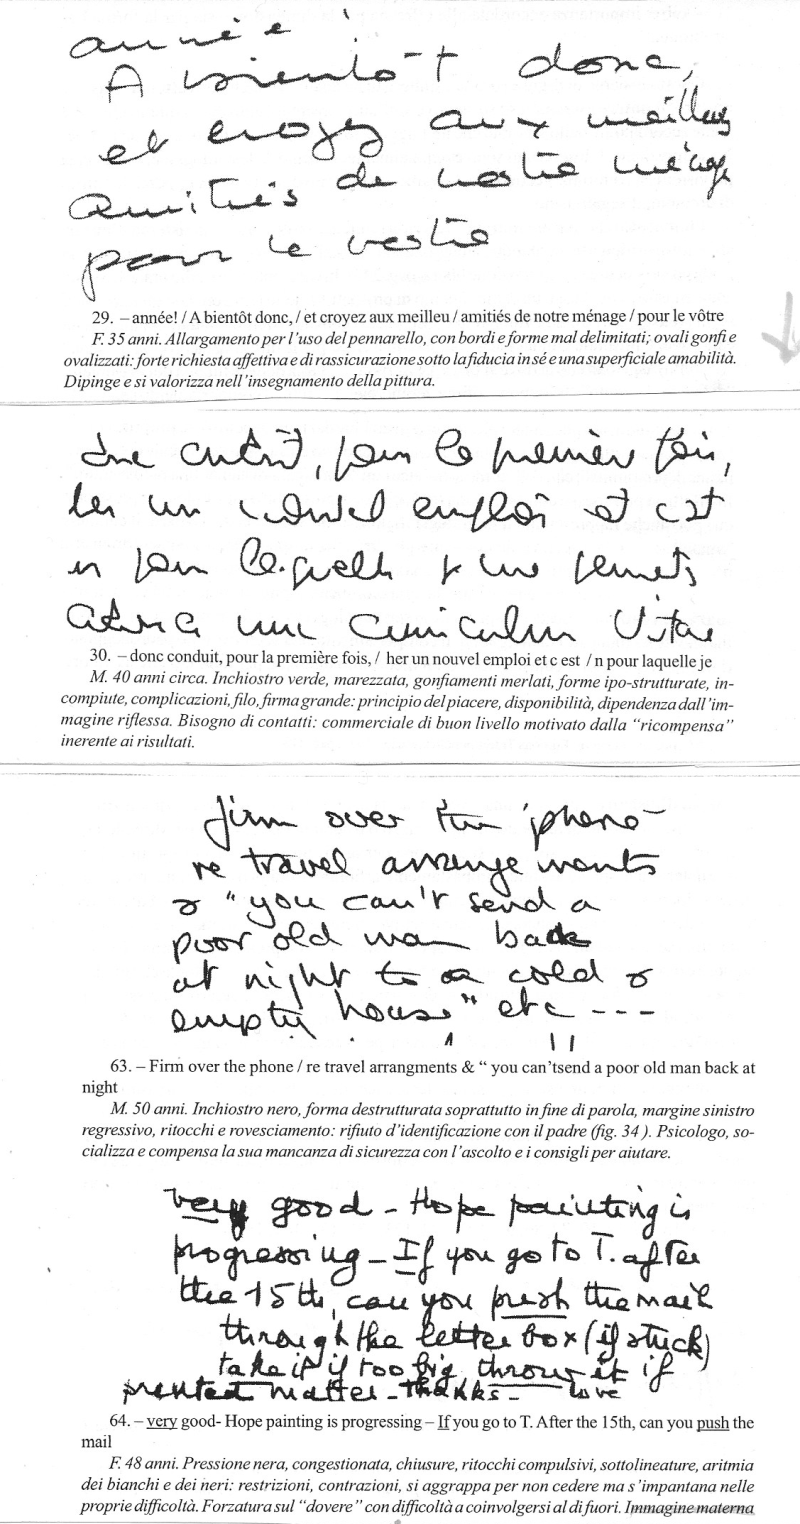 année!
A bientôt donc,
et croyez aux meilleus
amitiés de nostre ménage
pour le vostre
29. – année! / A bientôt donc, / et croyez aux meilleu / amitiés de notre ménage / pour le vôtre
F. 35 anni. Allargamento per l'uso del pennarello, con bordi e forme mal delimitati; ovali gonfi e
ovalizzati: forte richiesta affettiva e di rassicurazione sotto la fiducia in sé e una superficiale amabilità.
Dipinge e si valorizza nell'insegnamento della pittura.
pour la première fois,
her un nouvel emploi et c est
n pour laquelle je me permets
un curriculum vitae
30. – donc conduit, pour la première fois, / her un nouvel emploi et c est / n pour laquelle je
M. 40 anni circa. Inchiostro verde, marezzata, gonfiamenti merlati, forme ipo-strutturate, in-
compiute, complicazioni, filo, firma grande: principio del piacere, disponibilità, dipendenza dall'im-
magine riflessa. Bisogno di contatti: commerciale di buon livello motivato dalla "ricompensa"
inerente ai risultati.
firm over the 'phone –
re travel arrangements
& "you can't send a
poor old man back
at night to a cold &
empty house" etc ---
63. – Firm over the phone / re travel arrangments & " you can'tsend a poor old man back at
night
M. 50 anni. Inchiostro nero, forma destrutturata soprattutto in fine di parola, margine sinistro
regressivo, ritocchi e rovesciamento: rifiuto d'identificazione con il padre (fig. 34 ). Psicologo, so-
cializza e compensa la sua mancanza di sicurezza con l'ascolto e i consigli per aiutare.
very good – Hope painting is
progressing – If you go to T. after
the 15th, can you push the mail
through the letter box (if stuck)
take it if too big throw it if
printed matter – thanks –
love
64. – very good- Hope painting is progressing – If you go to T. After the 15th, can you push the
mail
F. 48 anni. Pressione nera, congestionata, chiusure, ritocchi compulsivi, sottolineature, aritmia
dei bianchi e dei neri: restrizioni, contrazioni, si aggrappa per non cedere ma s'impantana nelle
proprie difficoltà. Forzatura sul "dovere" con difficoltà a coinvolgersi al di fuori. Immagine materna